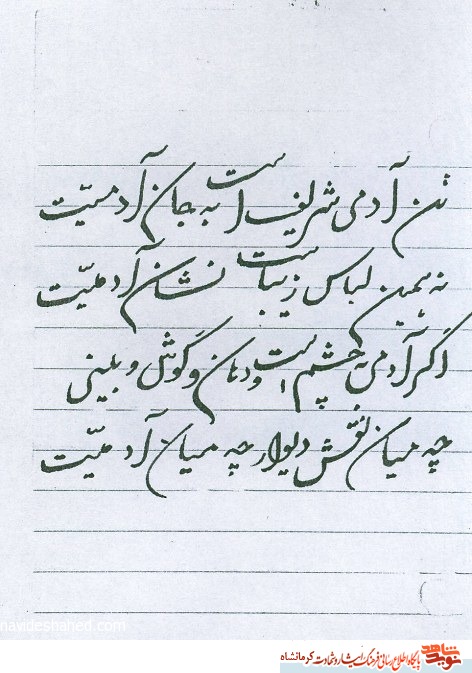 تن آدمی شریف است به جان آدمیّت
نه همین لباس زیباست نشان آدمیّت
اگر آدمی به چشم است و دهان و گوش و بینی
چه میان نقش دیوار چه میان آدمیّت
navideshahed.com
نوید شاهد پایگاه اطلاع رسانی فرهنگ ایثار و شهادت کرمانشاه